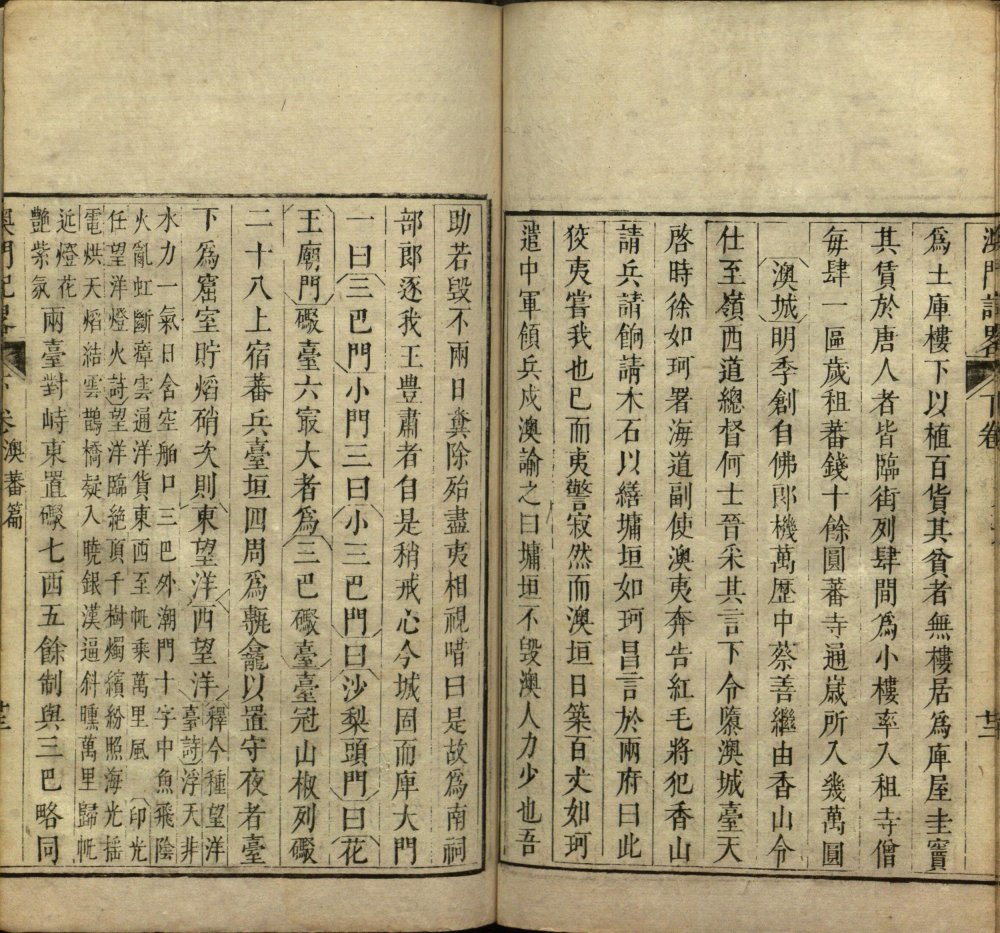 澳門記畧 下卷
爲土庫樓下以植百貨其貧者無樓居爲庳屋圭竇
其賃於唐人者皆臨街列肆間爲小樓率入租寺僧
每肆一區歲租蕃錢十餘圓蕃寺通歲所入幾萬圓
澳城明季創自佛郎機萬歷中蔡善繼由香山令
仕至嶺西道總督何士晉采其言下令隳澳城臺天
啓時徐如珂署海道副使澳夷奔告紅毛將犯香山
請兵請餉請木石以繕墉垣如珂昌言於兩府曰此
狡夷嘗我也已而夷警寂然而澳垣日築百丈如珂
遣中軍領兵戍澳諭之曰墉垣不毀澳人力少也吾
助若毀不兩日糞除殆盡夷相視唶曰是故爲南祠
部郎逐我王豐肅者自是稍戒心今城固而庳大門
一曰三巴門小門三曰小三巴門曰沙梨頭門曰花
王廟門礮臺六最大者爲三巴礮臺臺冠山椒列礮
二十八上宿蕃兵臺垣四周爲甎龕以置守夜者臺
下爲窟室貯熖硝次則東望洋西望洋
釋今種望洋
臺詩浮天非
水力一氣日舍空舶口三巴外潮門十字中魚飛陰
火亂虹斷瘴雲通洋貨東西至帆乘萬里風 印光
任望洋燈火詩望洋臨絕頂千樹燭繽紛照海光搖
電烘天熖結雲鵲橋疑入曉銀漢逼斜曛萬里歸帆
近燈花
艷紫氛
兩臺對峙東置礮七西五餘制與三巴略同
澳門記畧 下卷 澳蕃篇